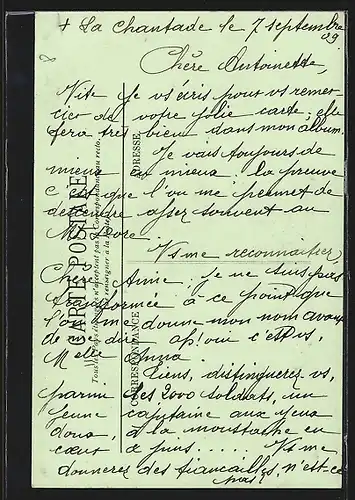 + La Chantade le 7 septembre 09
Chère Antoinette,
Vite je vs écris pour vs remer-
cier de votre jolie carte, elle
fera très bien dans mon album.
Je vais toujours de
mieux en mieux. La preuve
c'est que l'on me permet de
descendre assez souvent au
Vs me reconnaîtrez,
Chère Anine. Je ne suis pas
transformée à ce point que
l'on me donne mon nom avant
de me dire c'est vs,
Melle Anna.
Tiens, distinguerez vs,
parmi les 2000 soldats, un
jeune capitaine aux yeux
doux, à la moustache en
Vs me
donnerez des fiançailles, n'est-ce
pas
CARTE POSTALE
Tous les pays étrangers n'acceptent pas la Correspondance au recto.
CORRESPONDANCE
ADRESSE